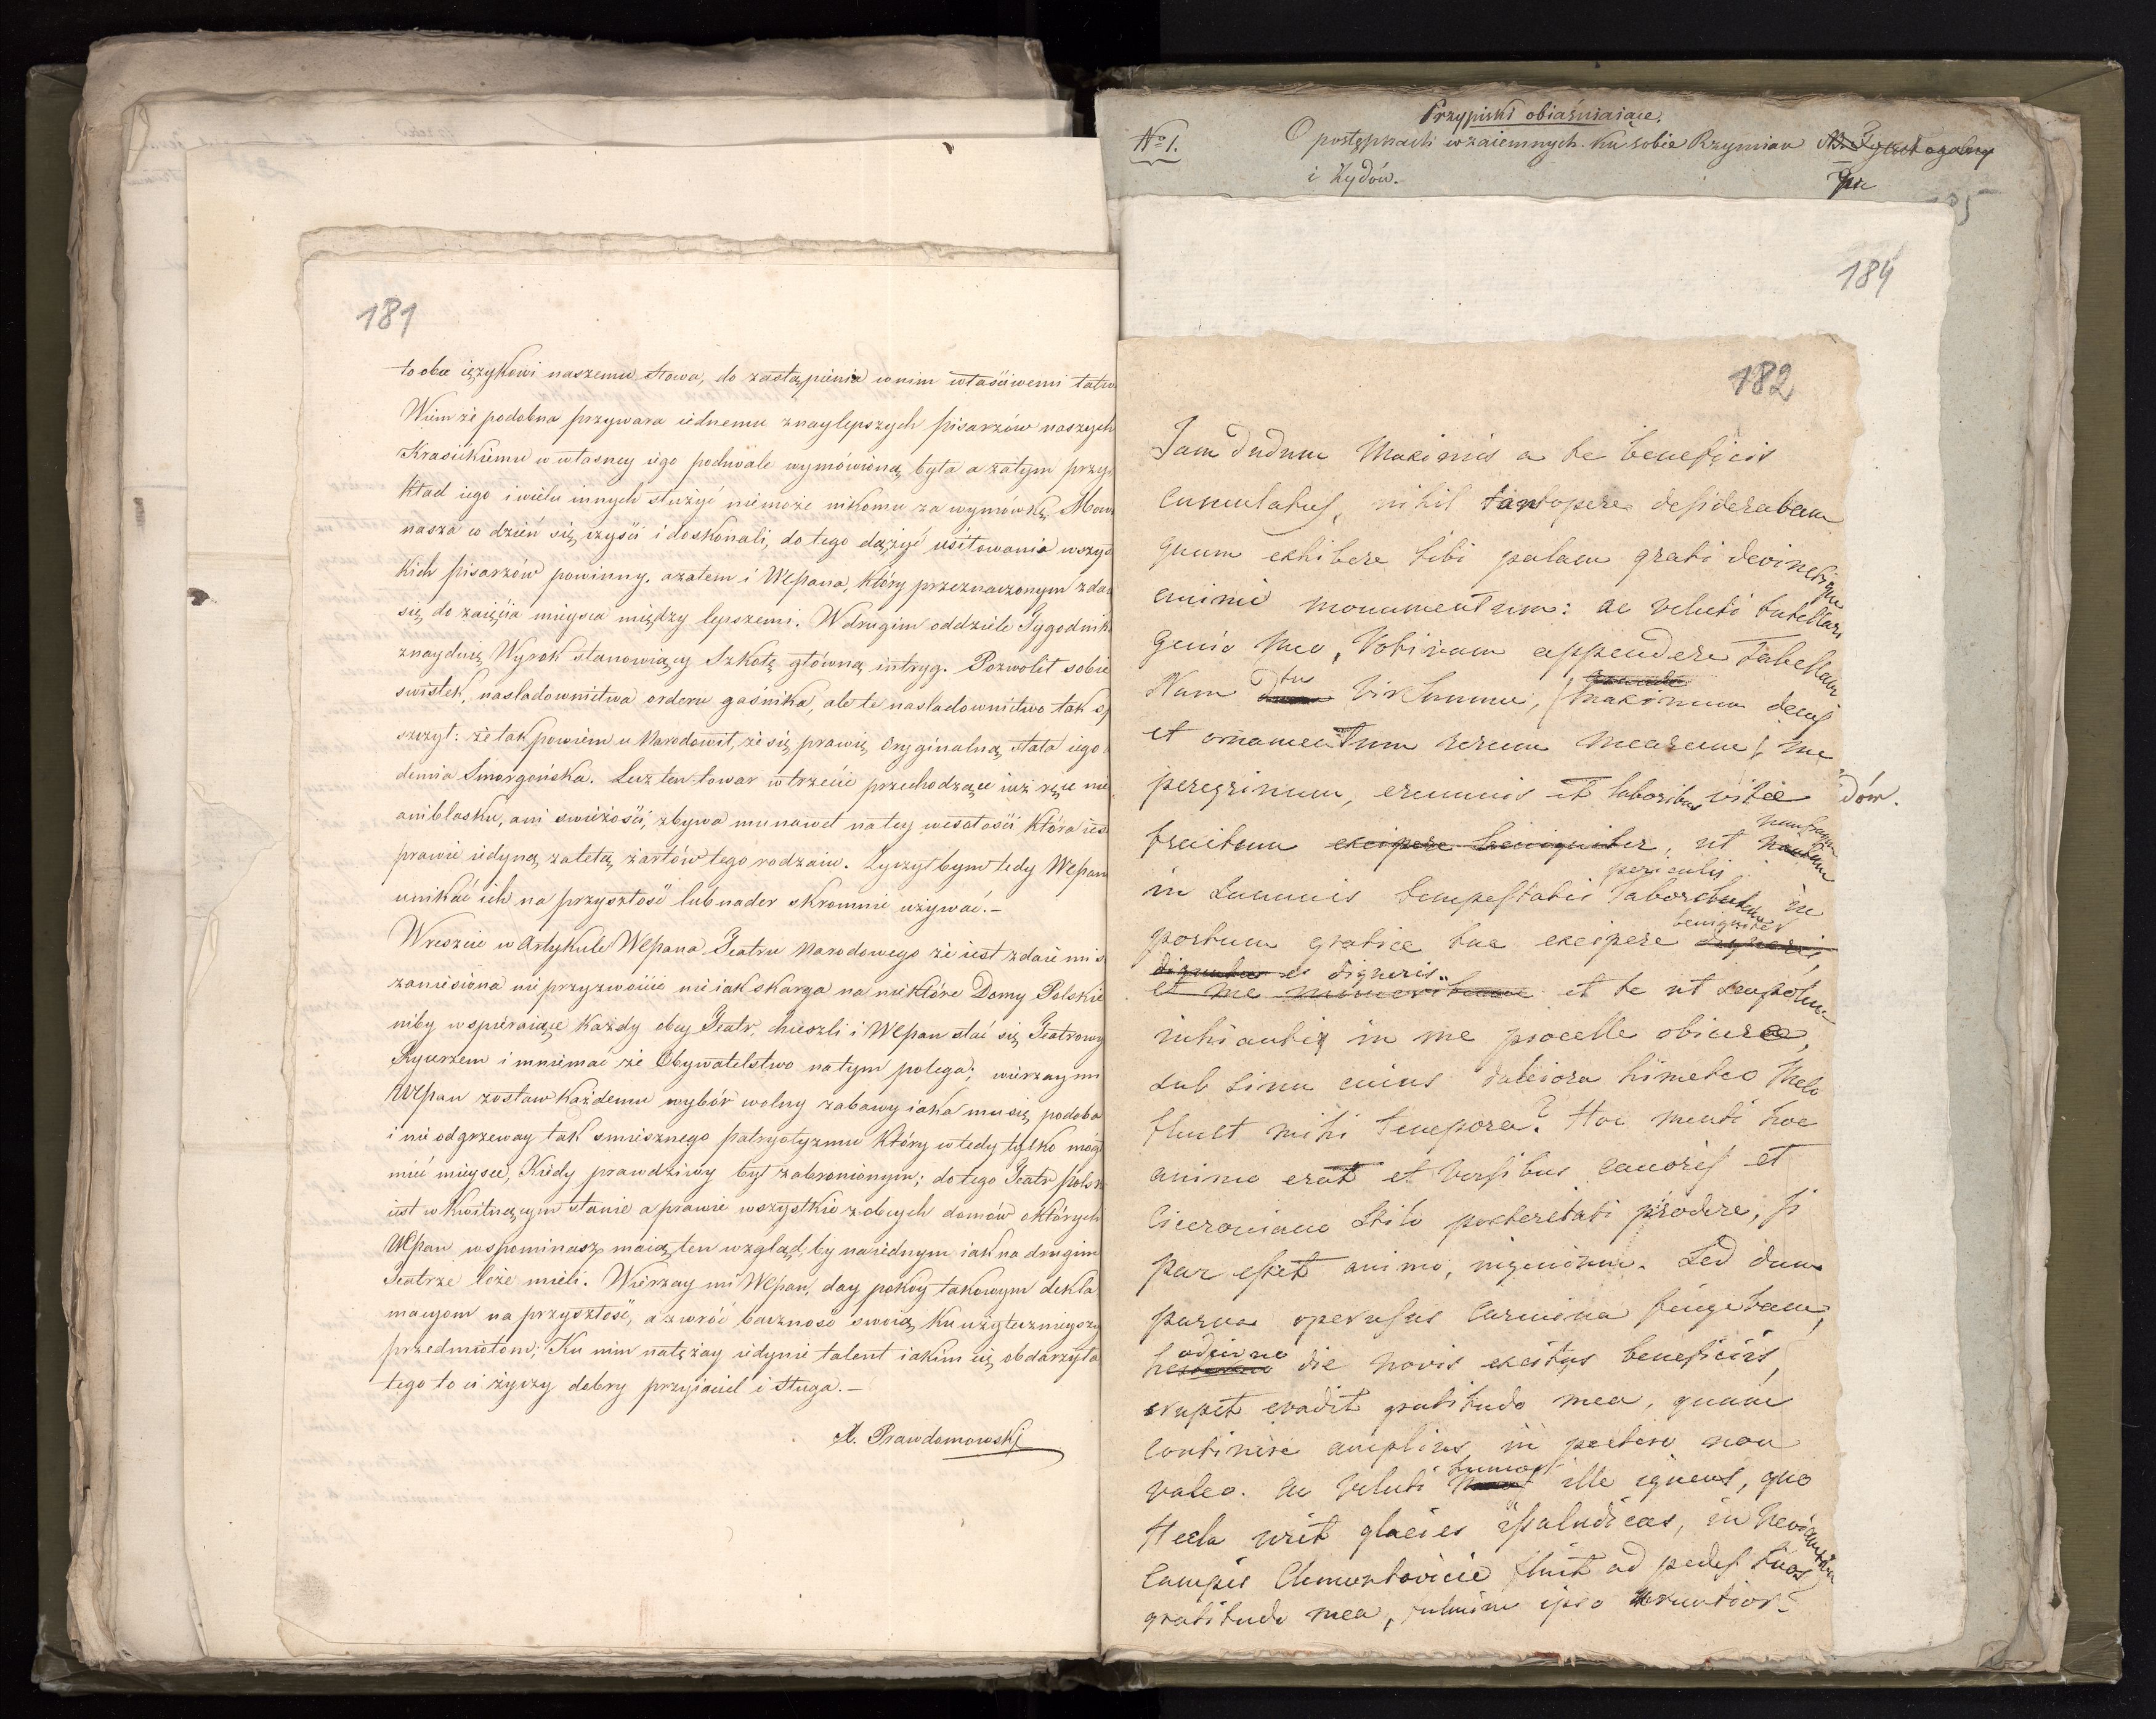 181
to obce ięzykowi naszemu słowa, do zastąpienia w nim właściwemi łatw
Wiem że podobna przywara iednemu z naylepszych pisarzów naszych
Krasickiemu w własney iego pochwale wymówioną była a zatym przy
kład iego i wielu innych służyć niemoże nikomu za wymówkę. Mow
nasza co dzień się czyści i doskonali, do tego dążyć usiłowania wszys
kich pisarzów powinny, a zatem i WPana, który przeznaczonym zda
się do zaięcia mieysca między lepszemi. W drugim oddziele Tygodnik
znayduię Wyrok stanowiący Szkołę główną intryg. Pozwolił sobie
swistek, nasladownictwa orderu gaśnika, ale te nasladownictwo tak
szczył: że tak powiem u Narodowił, że się prawie oryginalną stała iego
demia Smorgońska. Lecz ten towar w trzecie przechodzące iuż ręce nie
ani blasku, ani swieżości, zbywa mu nawet na tey wesołości która ies
prawie iedyną zaletą żartów tego rodzaiu. Życzył bym tedy WPan
unikać ich na przyszłość lub nader skromnie używać.-
Wreszcie w Artykule WPana Teatru Narodowego że iest zdaie mi s
zaniesiona nieprzyzwoicie nieiak skarga na niektóre Domy Polskie
niby wspieraiące każdy obcy Teatr, chceszli i WPan stać się Teatrowy
Rycerzem i mniemać że Obywatelstwo na tym polega; wierzay mi
WPan zostaw każdemu wybór wolny zabawy iaka mu się podoba
i nie odgrzeway tak smiesznego patryotyzmu który w tedy tylko mógł
mieć mieysce, kiedy prawdziwy był zabronionym; do tego Teatr Polsk
iest w kwitnącym stanie a prawie wszystkie z obcych domów o których
WPan wspominasz maią ten wzgląd, by na iednym iak na drugim
Teatrze loże mieli. Wierzay mi WPan, day pokóy takowym dekla
macyom na przyszłość, a zwróć baczność swoią ku użyteczniejszy
przedmiotom; Ku nim natężay iedynie talent iakim cię obdarzyła
tego to ci życzy dobry przyiaciel i sługa.-
A. Prawdomowski
Przypiski obiaśniaiące.
No 1.
O postępkach wzaiemnych ku sobie Rzymian
i Żydów.
184
182
Jam dudum maximis a te beneficiis
cumulatus, nihil tantopere desiderabam
quam exhibere tibi palam grati devinctique
animi monumentum: ac veluti tutelari
Genio meo, Votivam appendere tabellam
Nam tu Vir Summe, (maximum decus
et ornamentum rerum mearum) me
peregrinum, erumnis et laboribus vitae
fractum excipere benigniter, ut naufragum
in summis tempestatis periculis
portum gratiae tuae excipere benigniter
digneris et te ut
inhiantis in me procellae obicere,
sub sinu cuius dulciora himeteo Melle
fluxt mihi tempora? Hoc menti hoc
animo erat et Versibus canoris et
Ciceroniano Stilo posteretati prodere, si
par esset animo, ingenium. Sed dum
parva operosus carmina fingebam,
die novis excitus beneficiis,
erupit evadit gratitudo mea, quam
continere amplius in pectore non
valeo. Ac veluti ille igneus, quo
Hecla urit glacies
campis fluit ad pedes tuos
gratitudo mea, fulmine ipso
dów.